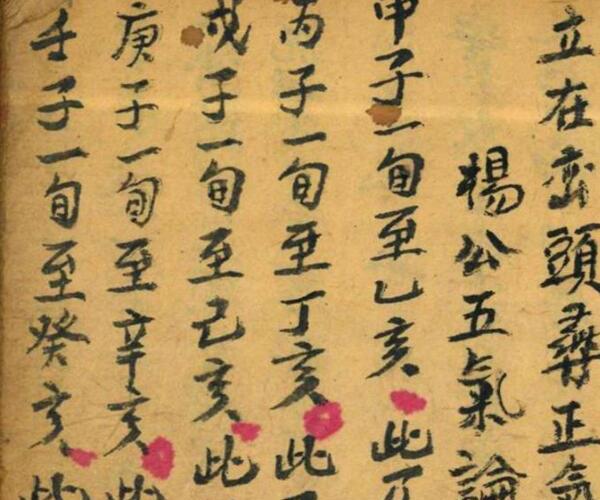 立在巒頭尋正氣
楊公五氣論
甲子一旬至乙亥此
丙子一旬至丁亥此
戊子一旬至己亥此
庚子一旬至辛亥此
壬子一旬至癸亥此